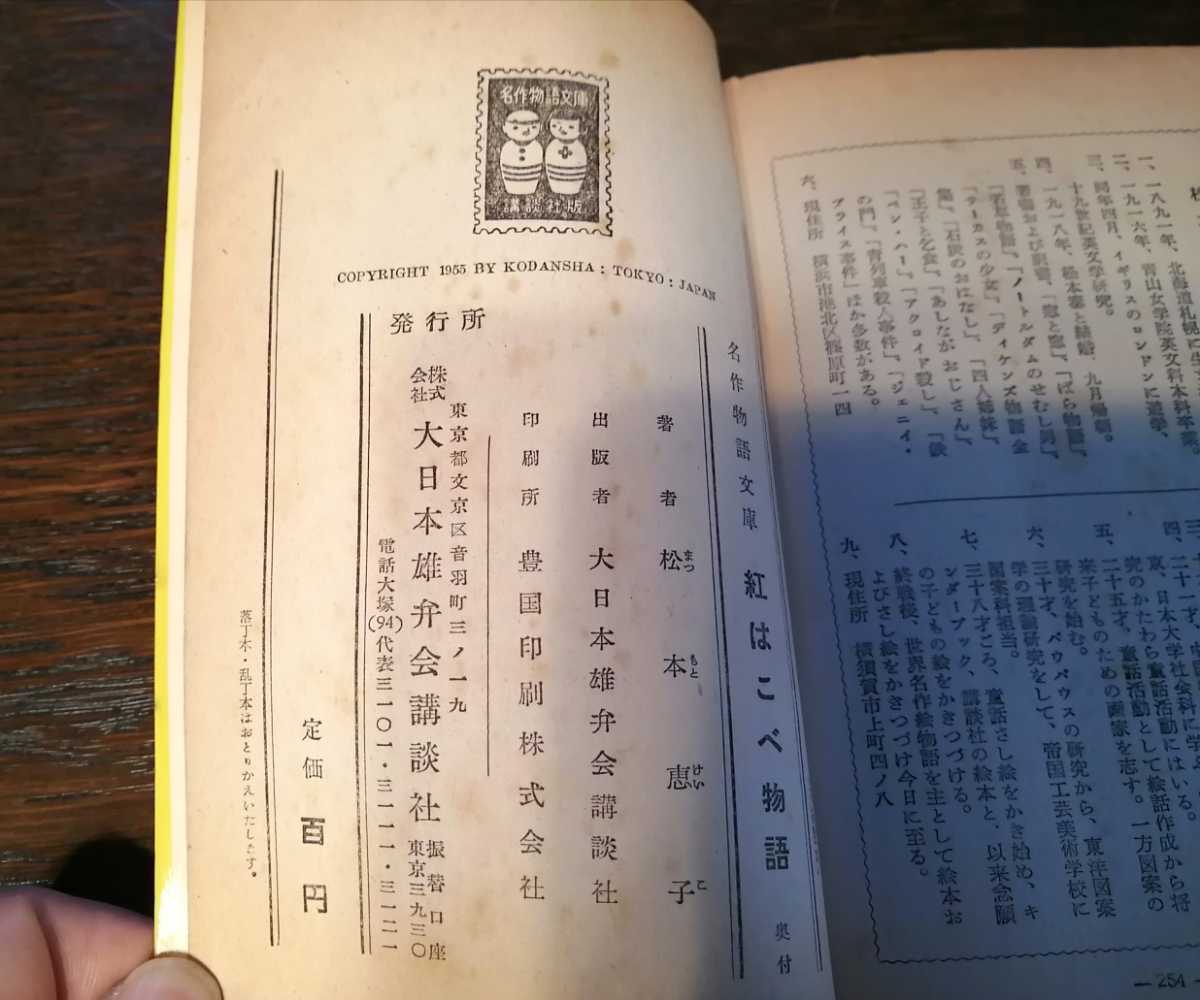 名作物語文庫
講談社版
COPYRIGHT 1955 BY KODANSHA : TOKYO : JAPAN
名作物語文庫 紅はこべ物語 奥付
著者 松本恵子
まつ もと けい こ
出版者 大日本雄弁会講談社
印刷所 豊国印刷株式会社
発行所
東京都文京区音羽町三ノ一九
株式会社 大日本雄弁会講談社 振替口座東京三九三〇
電話大塚(94)代表三一〇一・三一一一・三一二一
定価 百円
落丁本・乱丁本はおとりかえいたします。
一、一八九一年、北海道札幌に
二、一九一六年、青山女学院英文科本科卒業。
三、同年四月、イギリスのロンドンに遊学、
十九世紀英文学研究。
四、一九一八年、松本泰と結婚、九月帰朝。
五、著書および訳書、「窓と窓」、「ばら物語」、
「若草物語」、「ノートルダムのせむし男」、
「サーカスの少女」、「ディケンズ物語全
集」、「石炭のおはなし」、「四人姉妹」、
「王子と乞食」、「あしながおじさん」、「鉄
の門」、「青列車殺人事件」、「ジェニイ・
「ベン・ハー」、「アクロイド殺し」、
ブライス事件」ほか多数がある。
六、現住所 横浜市港北区篠原町一四
四、二十一才、
京、日本大学社会科に学
究のかたわら童話活動にはいる。
五、二十五才、童話活動として絵話作成から将
来子どものための画家を志す。一方図案の
研究を始む。
六、三十才、バウハウスの研究から、東洋図案
学の理論研究をして、帝国工芸美術学校に
図案科担当。
七、三十八才ごろ、童話さし絵をかき始め、キ
ンダーブック、講談社の絵本と、以来念願
の子どもの絵をかきつづける。
八、終戦後、世界名作絵物語を主として絵本お
よびさし絵をかきつづけ今日に至る。
九、現住所 横須賀市上町四ノ八
— 254 —